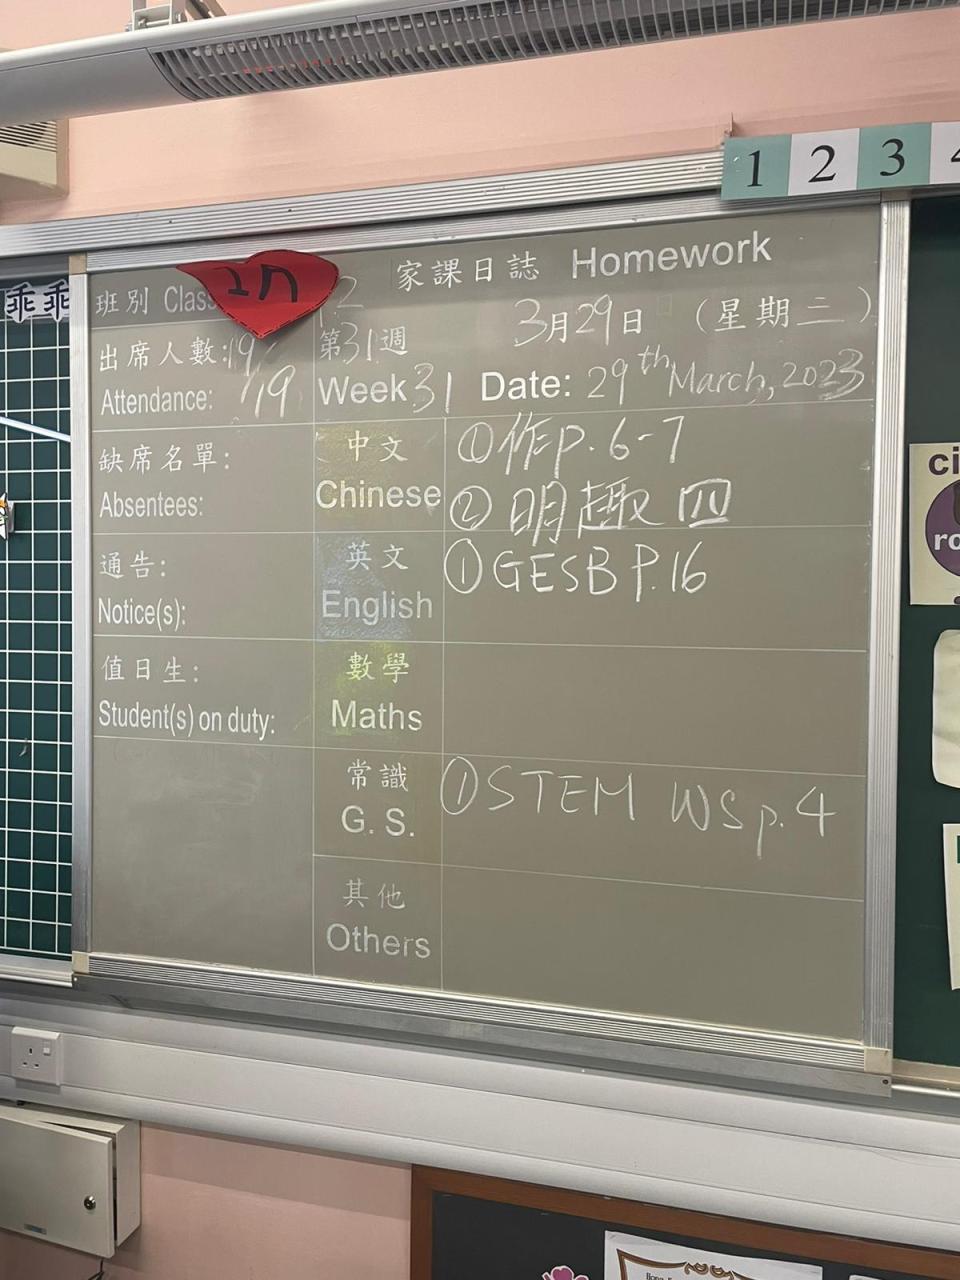 1 2 3 4
乖 乖
家課日誌 Homework
班別 Class
2
出席人數: 19
Attendance: 19
第31週
Week 31
3月29日 (星期二)
Date: 29th March, 2023
缺席名單:
Absentees:
中文
Chinese
①作p.6-7
②明趣四
通告:
Notice(s):
英文
English
①GESB P.16
值日生:
Student(s) on duty:
數學
Maths
常識
G. S.
①STEM WS p.4
其他
Others
ci
ro